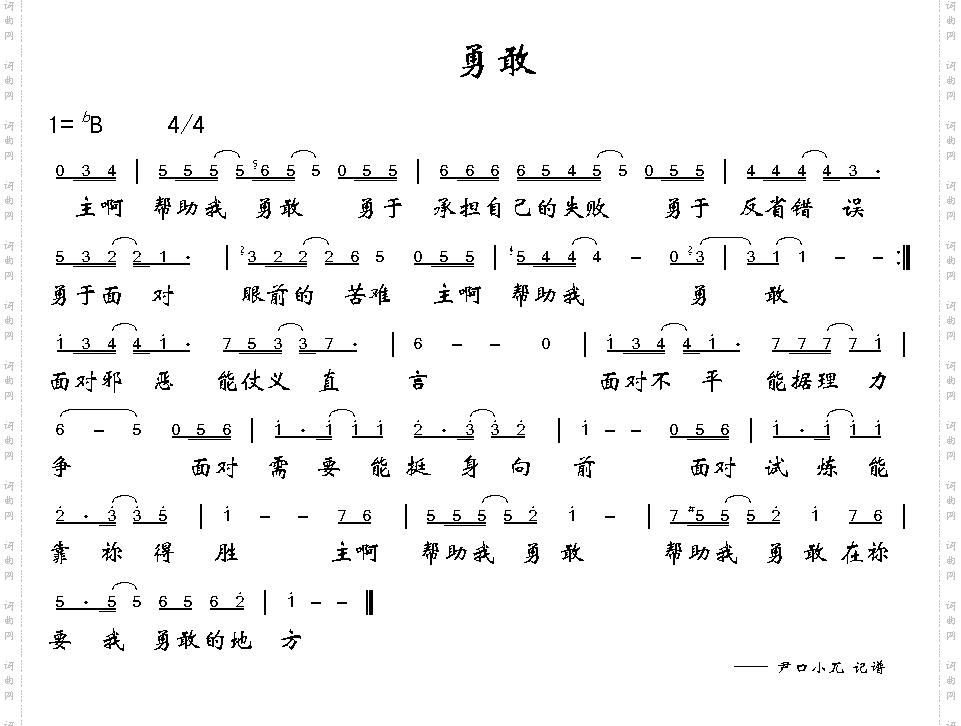 勇敢
1= bB 4/4
0 3 4 | 5 5 5 5 5 6 5 5 0 5 5 | 6 6 6 6 5 4 5 5 0 5 5 | 4 4 4 4 3 ·
主啊 帮助我 勇敢 勇于 承担自己的失败 勇于 反省错 误
5 3 2 2 1 · | 2 3 2 2 2 6 5 0 5 5 | 4 5 4 4 4 – 0 2 3 | 3 1 1 – – :||
勇于面 对 眼前的 苦难 主啊 帮助我 勇 敢
1 3 4 4 1 · 7 5 3 3 7 · | 6 – – 0 | 1 3 4 4 1 · 7 7 7 7 1 |
面对邪 恶 能仗义 直 言 面对不 平 能据理 力
6 – 5 0 5 6 | 1 · 1 1 1 1 2 · 3 3 2 | 1 – – 0 5 6 | 1 · 1 1 1
争 面对 需 要 能 挺 身 向 前 面对 试 炼 能
2 · 3 3 5 | 1 – – 7 6 | 5 5 5 5 2 1 – | 7 #5 5 5 2 1 7 6 |
靠 祢 得 胜 主啊 帮助我 勇 敢 帮助我 勇 敢 在祢
5 · 5 5 6 5 6 2 | 1 – – ||
要 我 勇敢的地 方
—— 尹口小兀 记谱
词曲网